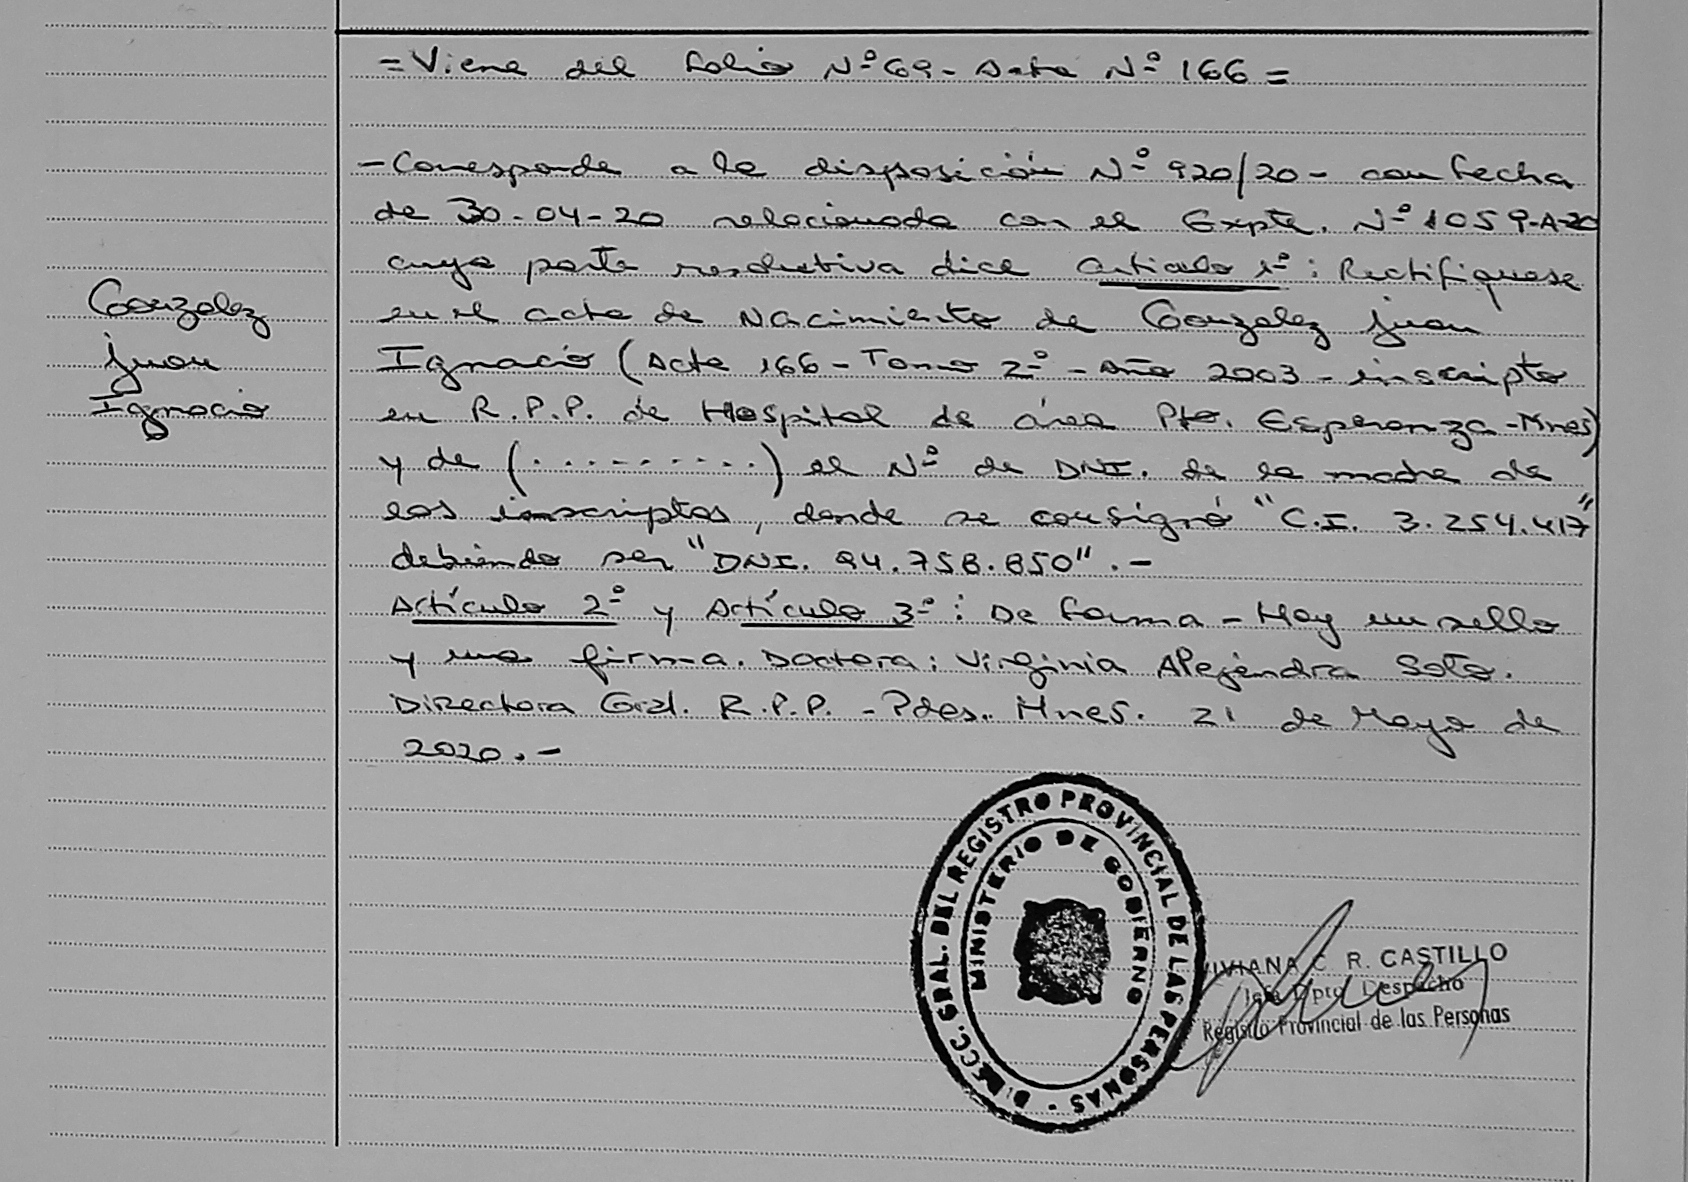 =Viene del Folio Nº69- Acta Nº 166=
-Corresponde a la disposición Nº 920/20- con fecha
de 30-04-20 relacionada con el Expte. Nº1059-A-20
cuya parte resolutiva dice Artículo 1º: Rectifíquese
en el acta de Nacimiento de Gonzalez Juan
Ignacio (Acta 166-Tomo 2º-Año 2003-inscripto
en R.P.P. de Hospital de área Pto. Esperanza-Mnes)
y de (..........) el Nº de DNI. de la madre de
los inscriptos, donde se consignó "C.I. 3.254.417"
debiendo ser "DNI. 94.758.850".-
Artículo 2º y Artículo 3º: De forma-Hay un sello
y una firma. Doctora: Virginia Alejandra Soto.
Directora Gral. R.P.P.-Pdas. Mnes. 21 de Mayo de
2020.-
Gonzalez
Juan
Ignacio
DIRECC. GRAL. DEL REGISTRO PROVINCIAL DE LAS PERSONAS -
MINISTERIO DE GOBIERNO
VIVIANA C. R. CASTILLO
Jefe Dpto. Despacho
Registro Provincial de las Personas